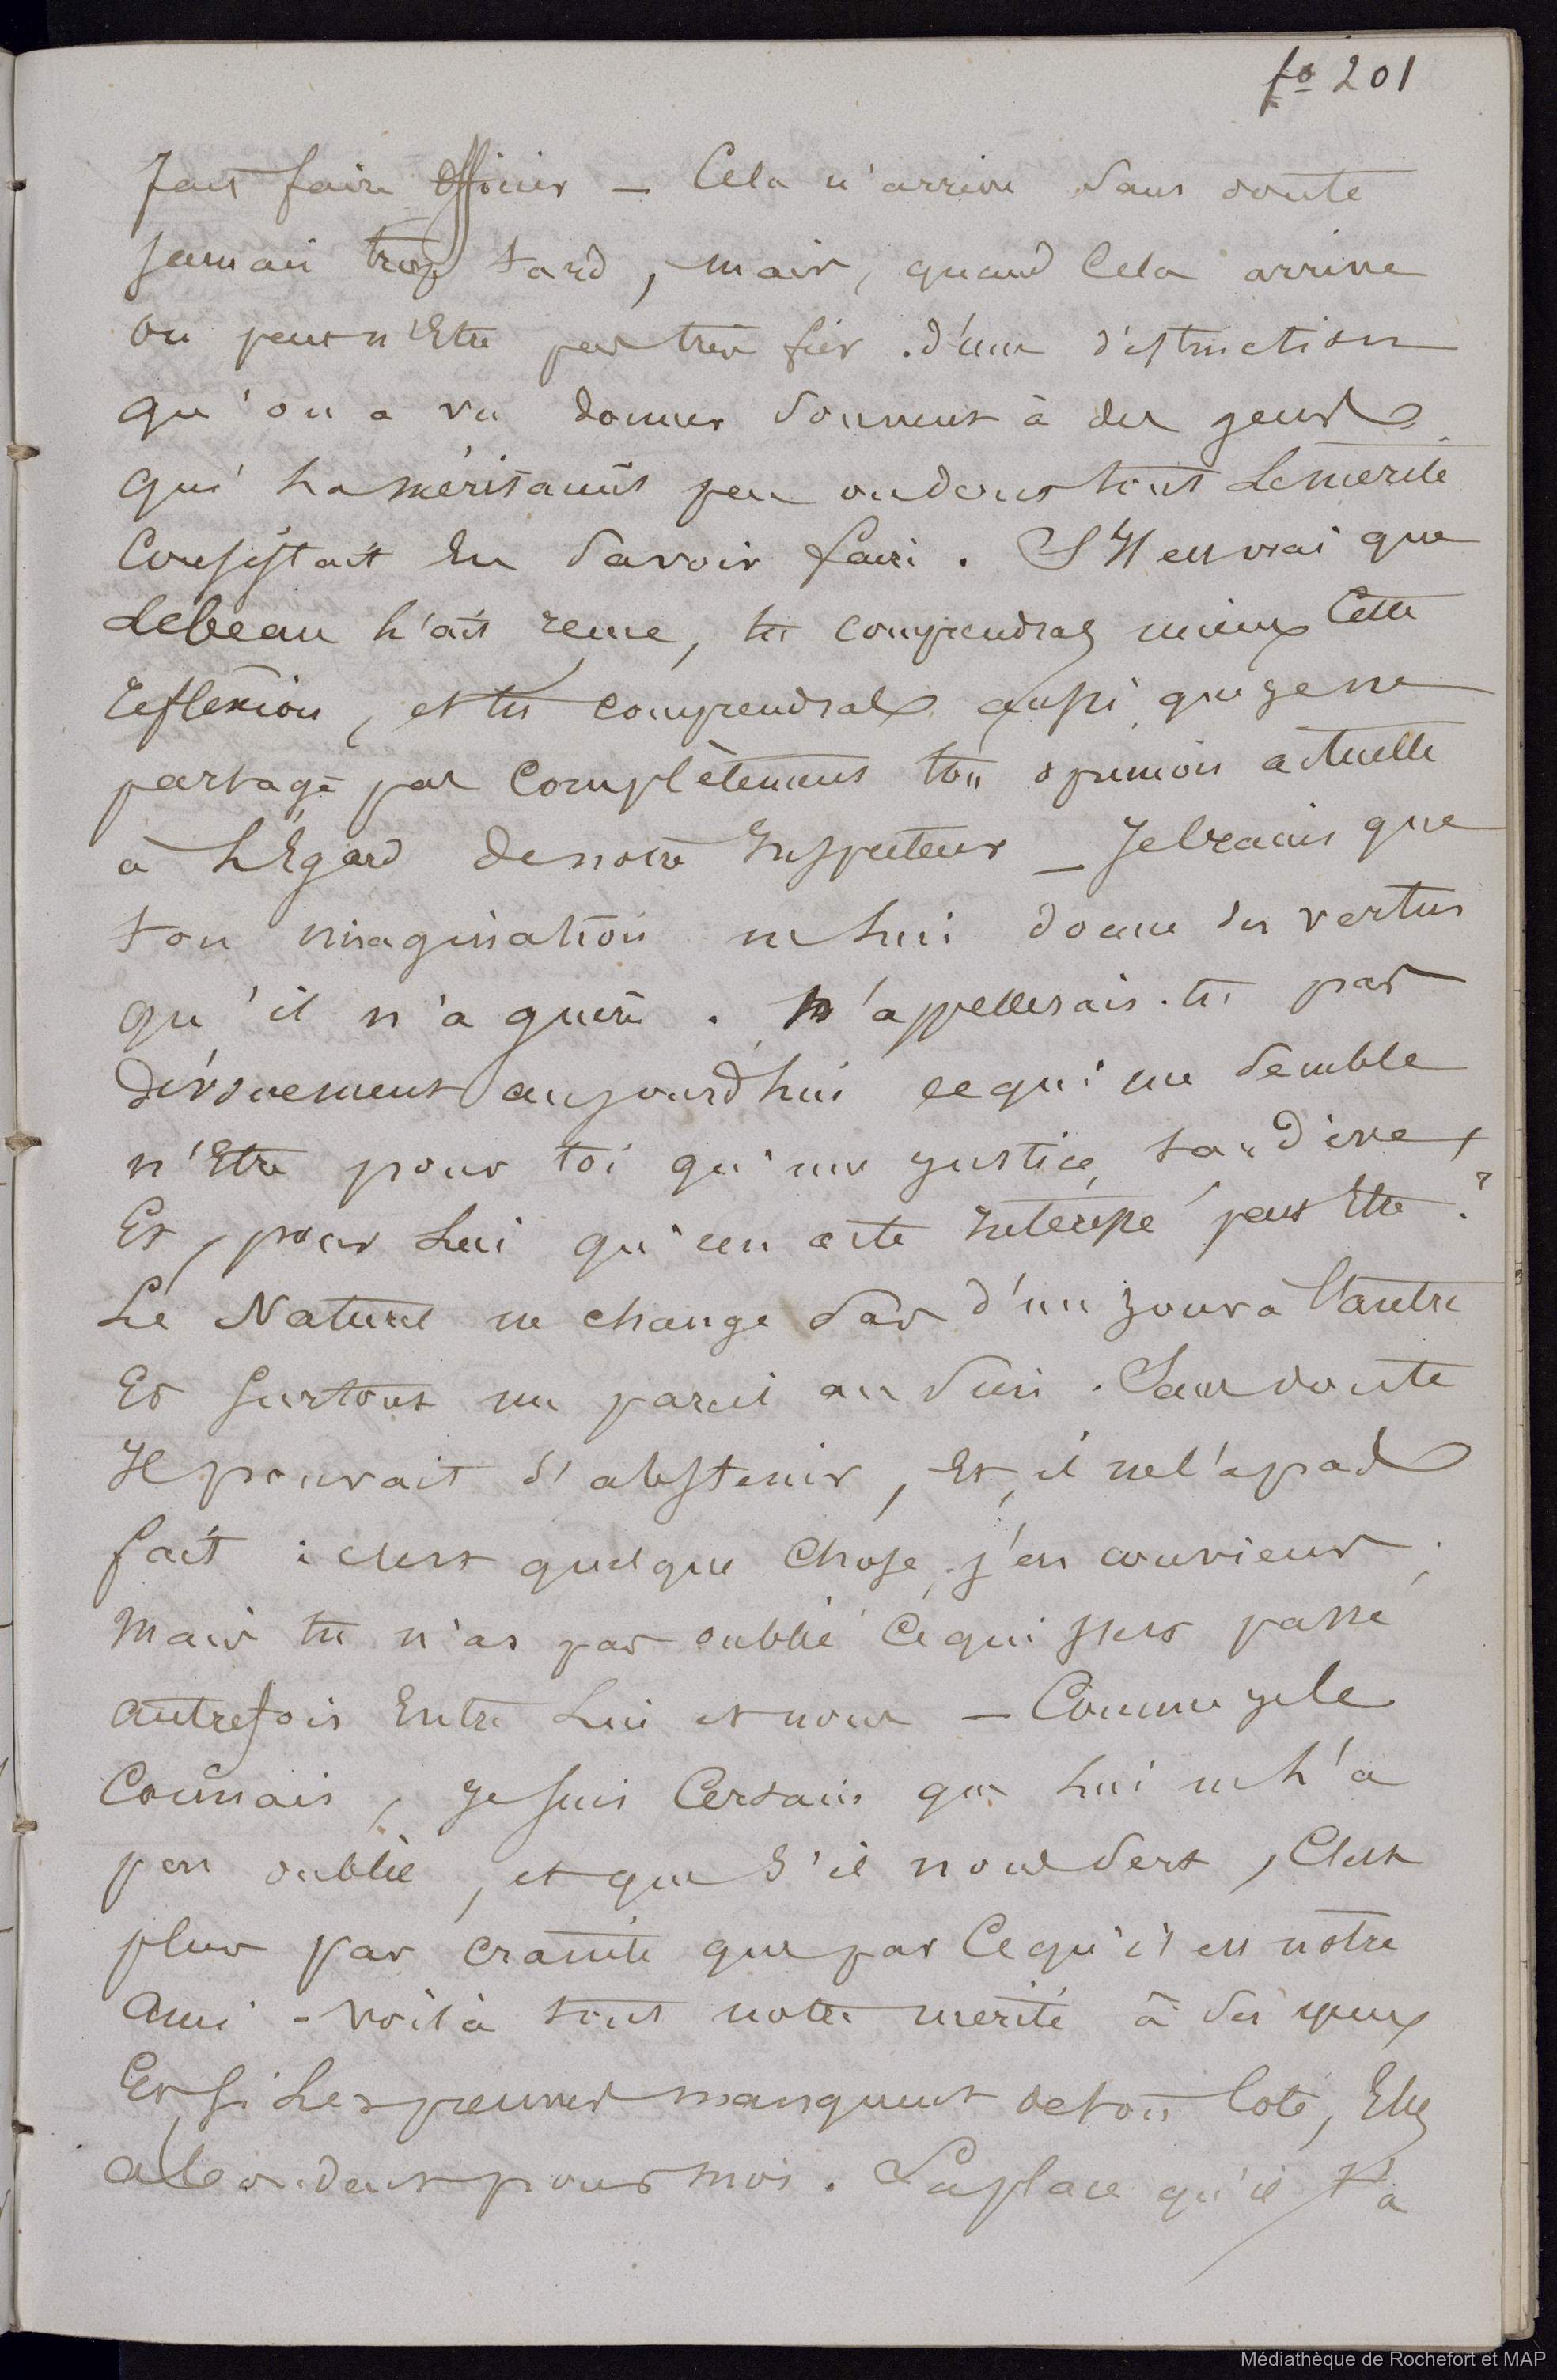 fo 201
fait faire officier — Cela n'arrive sans doute
jamais trop tard, mais, quand Cela arrive
on peut n'Etre pas très fier d'une distinction
qu'on a vu donner souvent à des gens
qui la méritaient peu ou dont tout Le mérite
Consistait En savoir faire. S'Il est vrai que
Lebeau l'ait reçue, tu comprendras mieux Cette
réflexion, et tu comprendras aussi que je ne
partage pas Complètement ton opinion actuelle
à L'Egard de notre Inspecteur — Je crains que
ton imagination ne Lui donne des vertus
qu'il n'a guère. N'appellerais-tu pas
Dévouement aujourd'hui ce qui me semble
n'Etre pour toi qu'une justice tardive
Et, pour Lui qu'un acte Intéressé peut Etre?
Le Naturel ne change pas d'un jour à l'autre
Et surtout un pareil au sien. Sans doute
Il pouvait s'abstenir, Et, il ne l'a pas
fait : c'est quelque Chose, j'en conviens,
Mais tu n'as pas oublié Ce qui s'est passé
autrefois Entre Lui et nous — Comme je le
Connais, je suis Certain que Lui ne L'a
pas oublié, et que s'il nous sert, C'est
plus par crainte que par Ce qu'il est notre
ami - voilà tout notre mérite à ses yeux
Et, si Les preuves manquent de ton Coté, Elles
abondent pour moi. La place qu'il t'a
Médiathèque de Rochefort et MAP